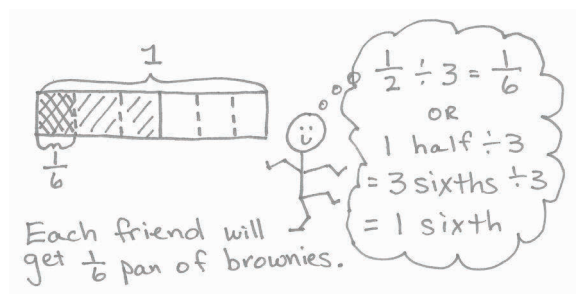 1
1/6
1/2 ÷ 3 = 1/6
OR
1 half ÷ 3
= 3 sixths ÷ 3
= 1 sixth
Each friend will
get 1/6 pan of brownies.